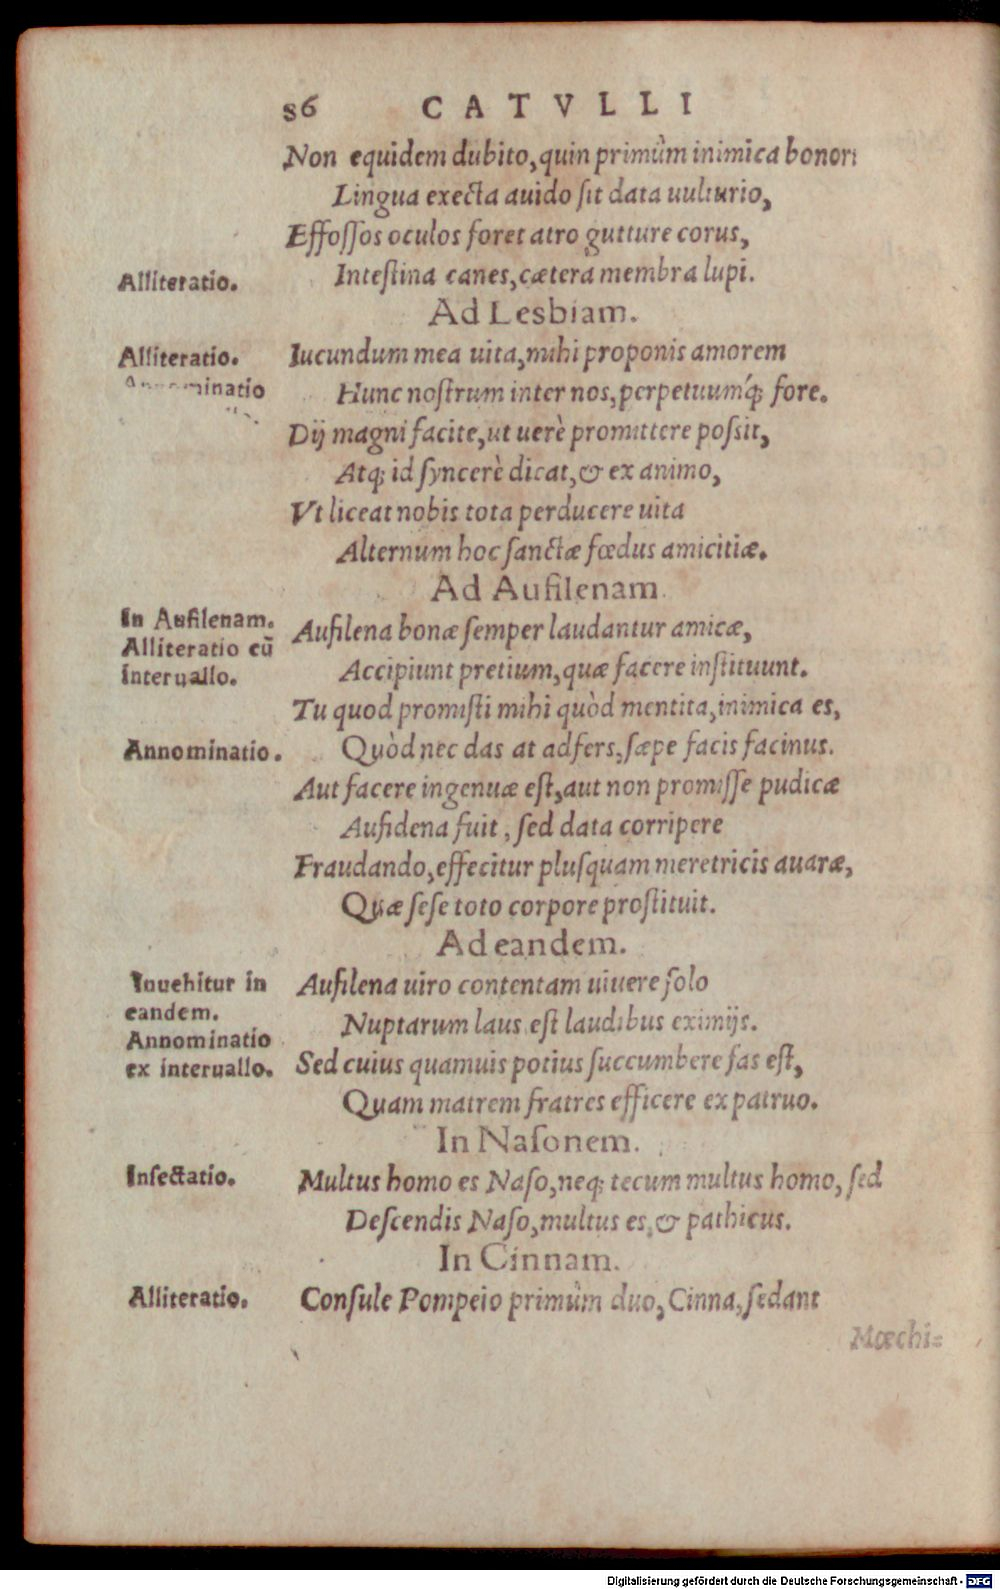 86 CATVLLI
Non equidem dubito, quin primùm inimica bonori
Lingua execta auido ſit data uulturio,
Effoſſos oculos foret atro gutture corus,
Alliteratio.
Inteſtina canes, cætera membra lupi.
Ad Lesbiam.
Alliteratio.
Iucundum mea uita, mihi proponis amorem
Annominatio
Hunc noſtrum inter nos, perpetuumq́; fore.
Dij magni facite, ut uerè promittere poſsit,
Atq; id ſyncerè dicat, & ex animo,
Vt liceat nobis tota perducere uita
Alternum hoc ſanctæ fœdus amicitiæ.
Ad Aufilenam.
In Aufilenam.
Alliteratio cū
interuallo.
Aufilena bonæ ſemper laudantur amicæ,
Accipiunt pretium, quæ facere inſtituunt.
Tu quod promiſti mihi quòd mentita, inimica es,
Annominatio.
Quòd nec das at adfers, ſæpe facis facinus.
Aut facere ingenuæ eſt, aut non promiſſe pudicæ
Aufidena fuit, ſed data corripere
Fraudando, effecitur pluſquam meretricis auaræ,
Quæ ſeſe toto corpore proſtituit.
Ad eandem.
Inuehitur in
eandem.
Annominatio
ex interuallo.
Aufilena uiro contentam uiuere ſolo
Nuptarum laus eſt laudibus eximijs.
Sed cuius quamuis potius ſuccumbere fas eſt,
Quam matrem fratres efficere ex patruo.
In Naſonem.
Inſectatio.
Multus homo es Naſo, neq; tecum multus homo, ſed
Deſcendis Naſo, multus es, & pathicus.
In Cinnam.
Alliteratio.
Conſule Pompeio primùm duo, Cinna, ſedant
Mœchi=
Digitalisierung gefördert durch die Deutsche Forschungsgemeinschaft - DFG